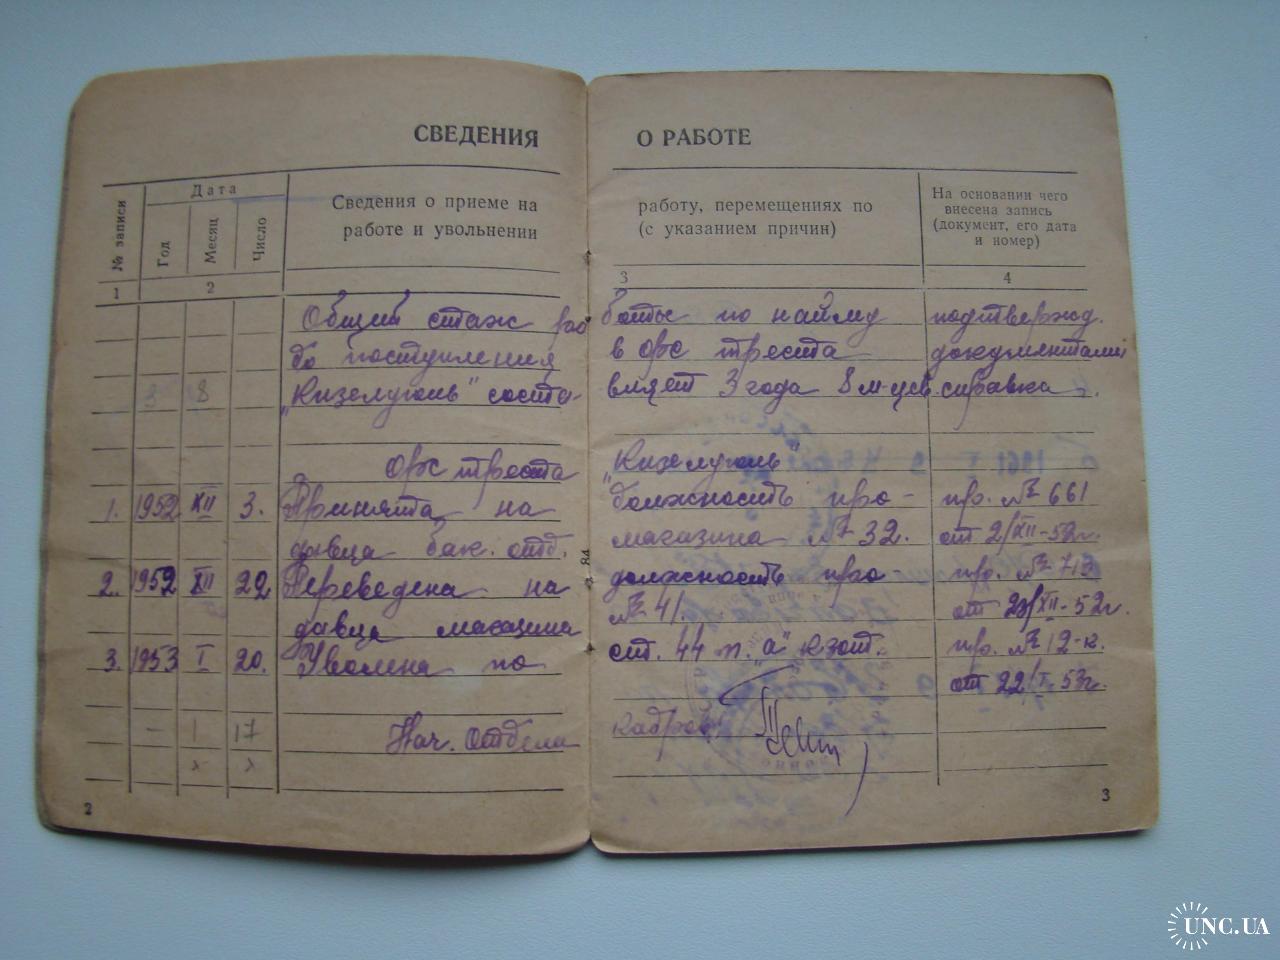 СВЕДЕНИЯ О РАБОТЕ
№ записи
Дата
Год
Месяц
Число
Сведения о приеме на работу, перемещениях по
работе и увольнении (с указанием причин)
На основании чего
внесена запись
(документ, его дата
и номер)
1 2 3 4
Общий стаж работы по найму подтвержд.
до поступления в орс треста документами
3 8 „Кизелуголь" составляет 3 года 8 м-цев. справка
Орс треста „Кизелуголь"
1. 1952 XII 3. Принята на должность про- пр. № 661
давца бак. отд. магазина № 32. от 2/XII-52г.
2. 1952 XII 22. Переведена на должность про пр. № 713
давца магазина № 41. от 23/XII-52г.
3. 1953 I 20. Уволена по ст. 44 п. "а" кзот. пр. № 12-к.
от 22/I-53г.
1 17
Нач. отдела кадров
84
2
3
UNC.UA